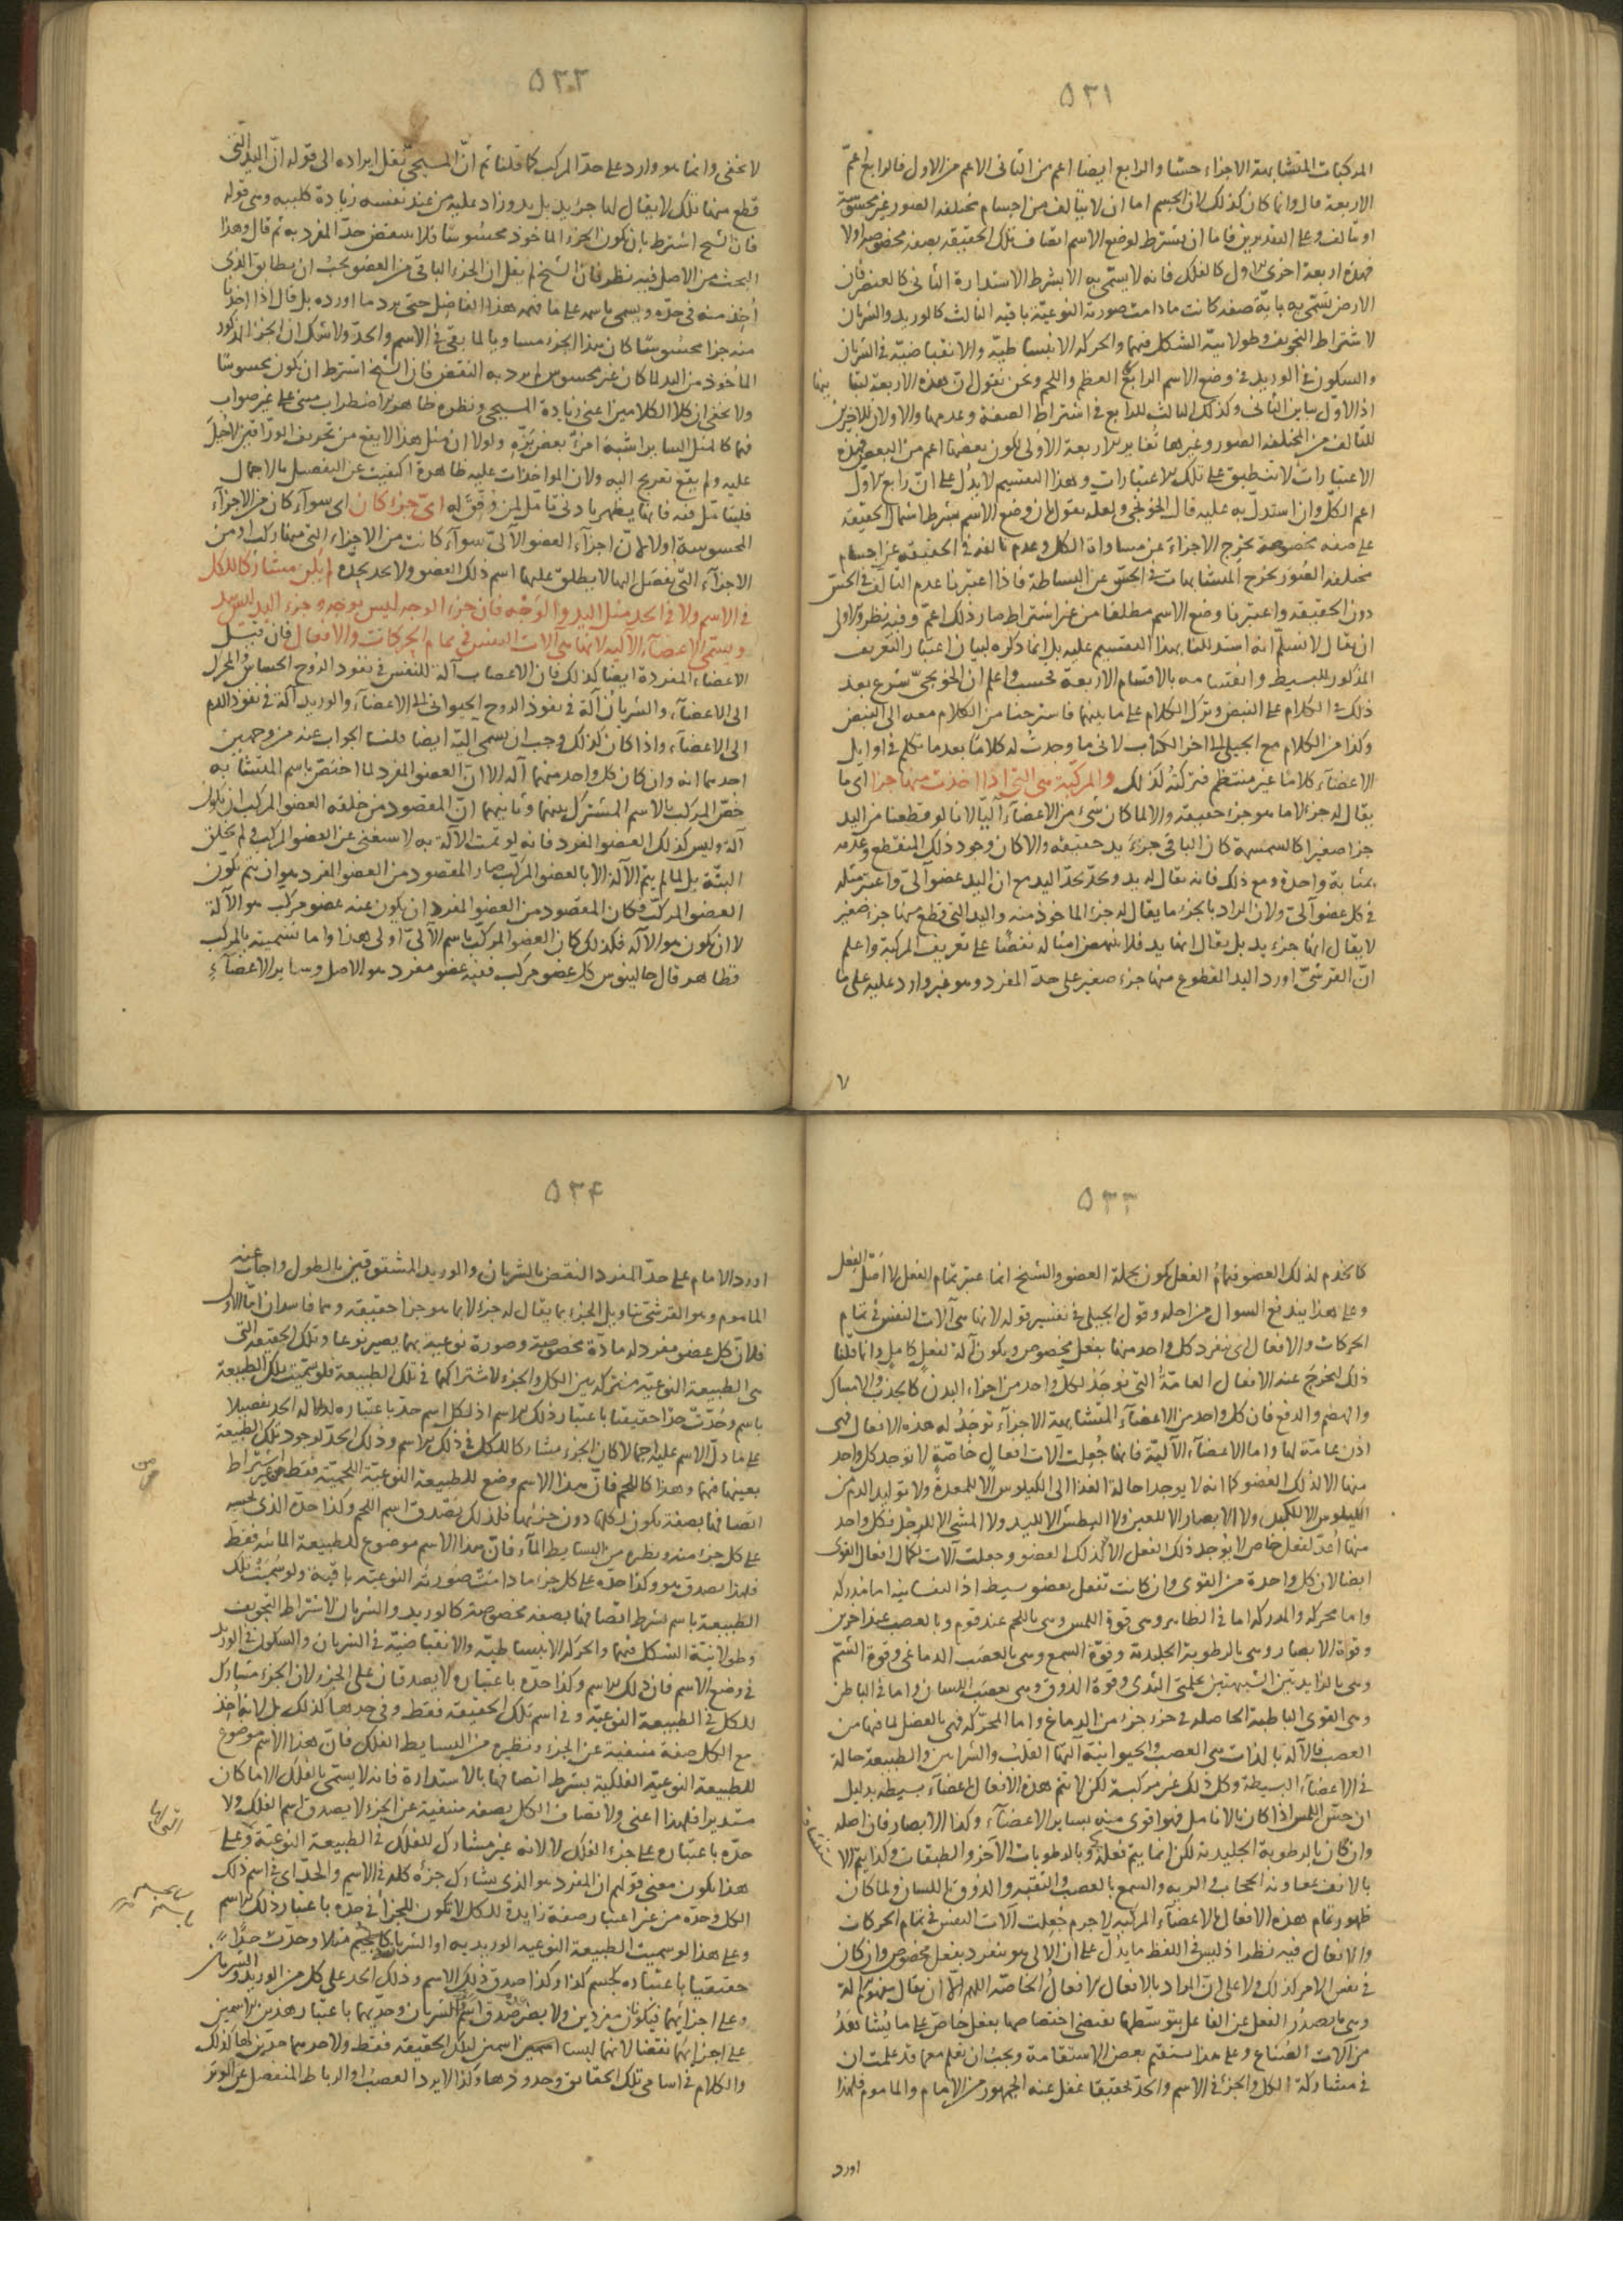 ٥٣١
المركبات المتشابهة الاجزاء حسّا والرابع ايضا اعم من الثانى الاعم من الاول فالرابع اعمّ
الاربعة قال وانما كان كذلك لان الجسم اما ان لا يتالف من اجسام مختلفه الصور غير محسوسة
او يتالف وعلى التقديرين فاما ان يشترط لوضع الاسم اتصاف تلك الحقيقه بصفه مخصوصه اولا
فهذه اربعة اخرى الاول كالفلك فانه لا يسمّى به الا بشرط الاستدارة الثانى كالعنصر فان
الارض تسمّى به باية صفه كانت ما دامت صورته النوعيّة باقيه الثالث كالوريد والشريان
لاشتراط التجويف وطولانيّة الشكل فيهما والحركه الانبساطيّة والانقباضيّة فى الشريان
والسكون فى الوريد فى وضع الاسم الرابع كالعظم واللحم ونحن نقول ان هذه الاربعة
اذ الاول يباين الثانى وكذلك الثالث للرابع فى اشتراط الصفة وعدمها والاولان للاخرين
للتالف من المختلفه الصور وغيرها تغاير الاربعة الاولى لكون بعضها اعم من البعض فهذه
الاعتبارات لا تنطبق على تلك الاعتبارات وهذا التقسيم لا يدل على انّ رابع الاول
اعم الكل وان استدل به عليه قال الخونجى ولعله يقول بان وضع الاسم بشرط اشتمال الحقيقه
على صفه مخصوصة يخرج الاجزاء عن مساواة الكل وعدم تالفه فى الحقيقه عن اجسام
مختلفه الصور يخرج المتشابهات فى الحسّ عن البساطة فاذا اعتبرنا عدم التالف فى الحسّ
دون الحقيقه واعتبرنا وضع الاسم مطلقا من غير اشتراط صار ذلك اعمّ وفيه نظر والاولى
ان يقال لا نسلم انه استدلنا بهذا التقسيم عليه بل انما ذكره لبيان اعتبار التعريف
المذكور للبسيط وانقسامه بالاقسام الاربعة فحسب واعلم ان الخونجىّ شرع بعد
ذلك فى الكلام على النبض وترك الكلام على ما بينهما فاسترحنا من الكلام معه الى النبض
وكذا من الكلام مع الجيلى الى اخر الكتاب لانى ما وجدت له كلامًا بعد ما تكلم فى اوايل
الاعضاء كلامًا غير منتظم فتركته لذلك والمركبة هى التى اذا اخذت منها جزا اى ما
يقال له جزء لا ما هو جزء حقيقه والا لما كان شىء من الاعضاء آليّا لانا لو قطعنا من اليد
جزا صغيرا كالسمسمة كان الباقى جزء يد حقيقه والا كان وجود ذلك المنقطع وعدمه
بمثابة واحدة ومع ذلك فانه يقال له يد ويحدّ بحدّ اليد مع ان اليد عضو آلىّ واعتبر مثله
فى كل عضو آلىّ ولان المراد بالجزء ما يقال له جزء الماخوذ منه واليد التى قطع منها جزء صغير
لا يقال انها جزء يد بل يقال انها يد فلا ينهض امثاله نقضًا على تعريف المركبة واعلم
انّ القرشىّ اورد اليد المقطوع منها جزء صغير على حدّ المفرد وهو غير وارد عليه على ما
٧
٥٣٢
لا يخفى وانما هو وارد على حدّ المركب كما قلنا ثم انّ المسيحىّ نقل ايراده الى قوله انّ اليد التى
قطع منها تلك لا يقال لها جزء يد بل يد وزاد عليه من عند نفسه زيادة كلبيه وهى قوله
فان الشيخ اشترط بان يكون الجزء الماخوذ محسوسًا فلا ينتقض حدّ المفرد به ثم قال وهذا
البحث من الاصل فيه نظر فان الشيخ لم يقل ان الجزء الباقى من العضو يجب ان يطابق الذى
اخذ منه فى حدّه ويسمى باسمه على ما فهمه هذا الفاضل حتى يرد ما اورده بل قال اذا اخذنا
منه جزا محسوسًا كان هذا الجزء مساويا لما بقى فى الاسم والحدّ ولا شك ان الجزء المذكور
المأخوذ من اليد لما كان غير محسوس لم يرد به النقض فان الشيخ اشترط ان يكون محسوسًا
ولا يخفى ان كلا الكلامين اعنى زيادة المسيحى ونظره ظاهر الاضطراب مبنى على غير صواب
فهما كالمثل السائر اشبه امرأ بعض بزّه ولولا ان مثل هذا لا يقع من تحريف الوراقين لاجل
عليه ولم يقع تعريج اليه ولان المواخذات عليه ظاهرة اكتفيت عن التفصيل بالاجمال
فليتامّل فيه فانها يظهر بادنى تامّل لمن وفّق له اىّ جزء كان اى سوآء كان من الاجزآء
المحسوسة اولا لانّ اجزآء العضو الآلىّ سوآء كانت من الاجزاء التى منها تركب او من
الاجزآء التى تفصّل اليها لا يطلق عليها اسم ذلك العضو ولا تحد بحدّه لم يكن مشاركا للكل
فى الاسم ولا فى الحد مثل اليد والوجه فان جزء الوجه ليس بوجه وجزء اليد ليس بيد
وتسمى الاعضاء الآلية لانها هى آلات النفس فى تمام الحركات والافعال فان قيل
الاعضاء المفردة ايضا كذلك فان الاعصاب آلة للنفس فى نفوذ الروح الحساس والمحرك
الى الاعضاء والشريان آلة فى نفوذ الروح الحيوانى الى الاعضآء والوريد آلة فى نفوذ الدم
الى الاعضآء واذا كان كذلك وجب ان يسمى اليّة ايضا قلنا الجواب عنه من وجهين
احدهما انه وان كان كل واحد منهما آلة الا ان العضو المفرد لما اختصّ باسم المتشابه
خصّ المركب بالاسم المشترك بينهما وثانيهما انّ المقصود من خلقه العضو المركب ان يكون
آلة وليس كذلك العضو المفرد فانه لو تمت الآلة به لاستغنى عن العضو المركب فلم يخلق
البتّة بل لما لم يتم الآلة الا بالعضو المركّب صار المقصود من العضو المفرد هو ان يتم تكوّن
العضو المركّب فكان المقصود من العضو المفرد ان يكون عنه عضو مركب هو الآلة
لا ان يكون هو الآلة فلذلك كان العضو المركّب باسم الآلىّ اولى هذا واما تسميته بالمركب
فظاهر قال جالينوس كل عضو مركب ففيه عضو مفرد هو الاصل وسائر الاعضآء
٥٣٣
كالخدم لذلك العضو فتمام الفعل يكون بجملة العضو والشيخ انما اعتبر تمام الفعل لا اصل الفعل
وعلى هذا يندفع السوال من اصله وقول الجيلى فى تفسير قوله لانها هى آلات النفس فى تمام
الحركات والافعال اى ينفرد كل واحد منها بفعل مخصوص ويكون آلة لفعل كامل وانما قلنا
ذلك ليخرج عنه الافعال العامّة التى توجد لكل واحد من اجزاء البدن كالجذب والامساك
والهضم والدفع فان كل واحد من الاعضآء المتشابهة الاجزآء توجد له هذه الافعال فهى
اذن عامة لها واما الاعضآء الآليّة فانها جعلت الات افعال خاصّة لا توجد كل واحد
منها الا لذلك العضو كما انه لا يوجد احالة الغذا الى الكيلوس الا للمعدة ولا توليد الدم من
الكيلوس الا للكبد ولا الابصار الا للعين ولا البطش الا لليد ولا المشى الا للرجل فكل واحد
منها اعدّ لفعل خاص لا يوجد ذلك الفعل الا لذلك العضو وجعلت آلات لكمال افعال القوى
ايضا لان كل واحدة من القوى وان كانت تفعل بعضو بسيط اذ النفسانيه اما مدركه
واما محركه والمدركه اما فى الظاهر وهى قوة اللمس وهى باللحم عند قوم وبالعصب عند اخرين
وقوة الابصار وهى بالرطوبة الجليدية وقوّة السمع وهى بالعصب الدماغى وقوة الشمّ
وهى بالزايدتين الشبيهتين بحلمتى الثدى وقوة الذوق وهى بعصب اللسان واما فى الباطن
وهى القوى الباطنه الحاصله فى جزء جزء من الدماغ واما المحرّكه فهى بالعضل لما فيها من
العصب فالآلة بالذات هى العصب والحيوانية آلتها القلب والشرايين والطبيعة حالة
فى الاعضاء البسيطة وكل ذلك غير مركبة لكن لا تتم هذه الافعال الا باعضآء بسيطه بدليل
ان حسّ اللمس اذا كان بالانامل فهو اقوى منه بسائر الاعضآء وكذا الابصار فان اصله
وان كان بالرطوبة الجليدية لكن انما يتم فعله وبالرطوبات الآخر والطبقات وكذا يتم الا
بالانف بمعاونة الحجاب والريه والسمع بالعصب والثقبه والذوق باللسان ولما كان
ظهور تمام هذه الافعال بالاعضآء المركبه لا جرم جعلت آلات النفس فى تمام الحركات
والافعال فيه نظر اذ ليس فى اللفظ ما يدل على ان الالى هو ينفرد بفعل مخصوص وان كان
فى نفس الامر كذلك ولا على انّ المراد بالافعال الافعال الخاصّه اللهم الا ان يقال مفهوم الة
وهى ما يصدر الفعل عن الفاعل بتوسّطها يقتضى اختصاصها بفعل خاصّ على ما يشاهد
من آلات الصناع وعلى هذا يستقيم بعض الاستقامة ويجب ان تعلم مما قد علمت ان
فى مشاركة الكل والجزء فى الاسم والحدّ تحقيقا غفل عنه الجمهور من الامام والماموم فلهذا
اورد
٥٣٤
اورد الامام على حدّ المفرد النقض بالشريان والوريد المشقوقين بالطول واجاب عنه
الماموم وهو القرشى بتاويل الجزء بما يقال له جزء لا بما هو جزا حقيقه وهما فاسدان امّا الاول
فلانّ كل عضو مفرد له مادّة مخصوصة وصورة نوعية بهما يصير نوعا وتلك الحقيقه التى
هى الطبيعة النوعيّة مشتركه بين الكل والجزء لاشتراكهما فى تلك الطبيعة فلو سمّيت تلك الطبيعة
باسم وحدّت حدّا حقيقيا باعتبار ذلك الاسم اذ لكل اسم حدّ باعتباره لدلالة الحد تفصيلا
على ما دلّ الاسم عليه اجمالا كان الجزء مشاركا للكل فى ذلك الاسم وذلك الحدّ لوجود تلك الطبيعة
بعينها فيهما وهذا كاللحم فانّ هذا الاسم وضع للطبيعة النوعيّة اللحميّة فقط من غير اشتراط
اتصافها بصفة تكون لكلها دون جزئها فلذلك يصدق اسم اللحم وكذا حدّه الذى بحسبه
على كل جزء منه ونظيره من البسايط المآء فانّ هذا الاسم موضوع للطبيعة المائية فقط
فلهذا يصدق هو وكذا حدّه على كل جزء ما دامت صورته النوعيه باقية ولو سمّيت تلك
الطبيعة باسم بشرط اتصافها بصفه مخصوصة كالوريد والشريان لاشتراط التجويف
وطولانيّة الشكل فيهما والحركه الانبساطيّه والانقباضيّة فى الشريان والسكون فى الوريد
فى وضع الاسم فان ذلك الاسم وكذا حدّه باعتباره لا يصدقان على الجزء لان الجزء مشارك
للكل فى الطبيعة النوعيّه وفى اسم تلك الحقيقه فقط وفى حدها كذلك بل لانها اخذ
مع الكل صفة منفية عن الجزء ونظيره من البسايط الفلك فانّ هذا الاسم موضوع
للطبيعة النوعيّه الفلكيه بشرط اتصافها بالاستدارة فانه لا يسمّى بالفلك الا ما كان
مستديرا فلهذا اعنى ولاتصاف الكل بصفه منتفية عن الجزء لا يصدق اسم الفلك ولا
حدّه باعتباره على جزء الفلك لا لانه غير مشارك للفلك فى الطبيعة النوعيّة وعلى
هذا يكون معنى قولهم ان المفرد هو الذى يشارك جزءه كله فى الاسم والحدّ اى فى اسم ذلك
الكل وحدّه من غير اعتبار صفة زايدة للكل لا تكون للجزء فى حدّه باعتبار ذلك الاسم
وعلى هذا لو سميت الطبيعة النوعيه الوريديه او الشريانية مثلا وحدّت حدّا
حقيقيا باعتباره كجسم كذا وكذا صدق ذلك الاسم وذلك الحد على كل من الوريد والشريان
وعلى اجزائهما فيكونان مفردين ولا يضر صدق اسم الشريان وحدّيهما باعتبار هذين الاسمين
على اجزائهما نقضا لانهما ليسا اسمين لتلك الحقيقه فقط ولا حدّهما حدّين لها كذلك
والكلام فى اسامى تلك الحقائق وحدودها وكذا لا يرد العصب او الرباط المنفصل عن الوتر